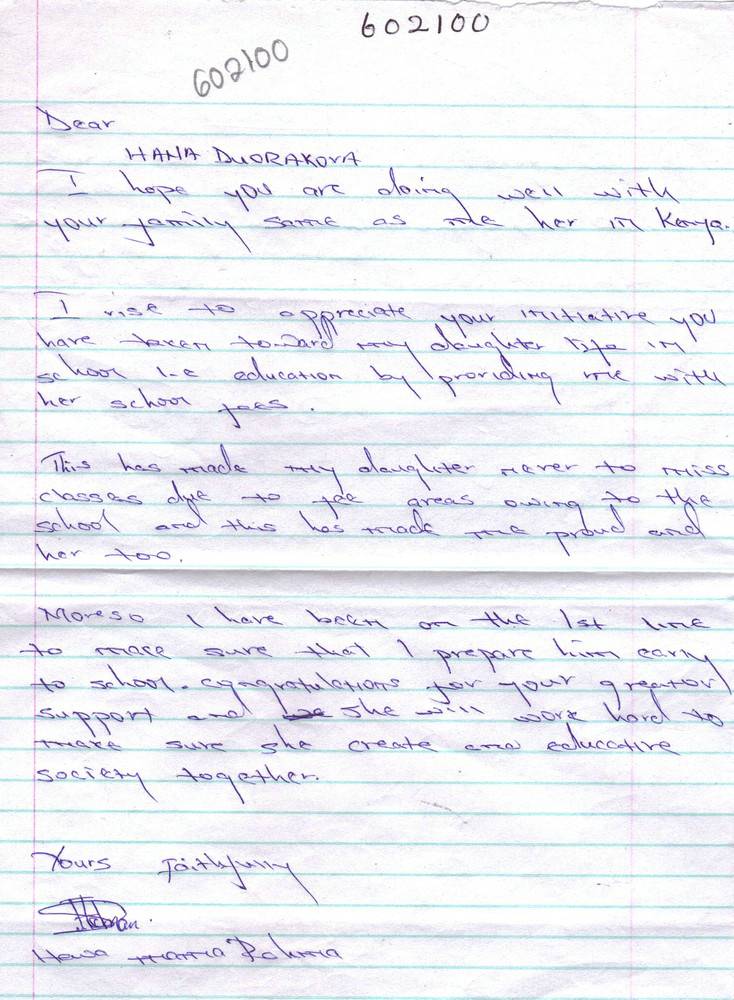 602100
602100
Dear
HANA DVORAKOVA
I hope you are doing well with
your family same as me her in Kenya.
I rise to appreciate your initiative you
have taken toward my daughter life in
school i.e education by providing me with
her school fees.
This has made my daughter never to miss
classes due to fee areas owing to the
school and this has made me proud and
her too.
Moreso I have been on the 1st line
to make sure that I prepare him early
to school. congratulations for your greator
support and she will work hard to
make sure she create and educative
society together.
Yours faithfully
Hawa mama Rahma